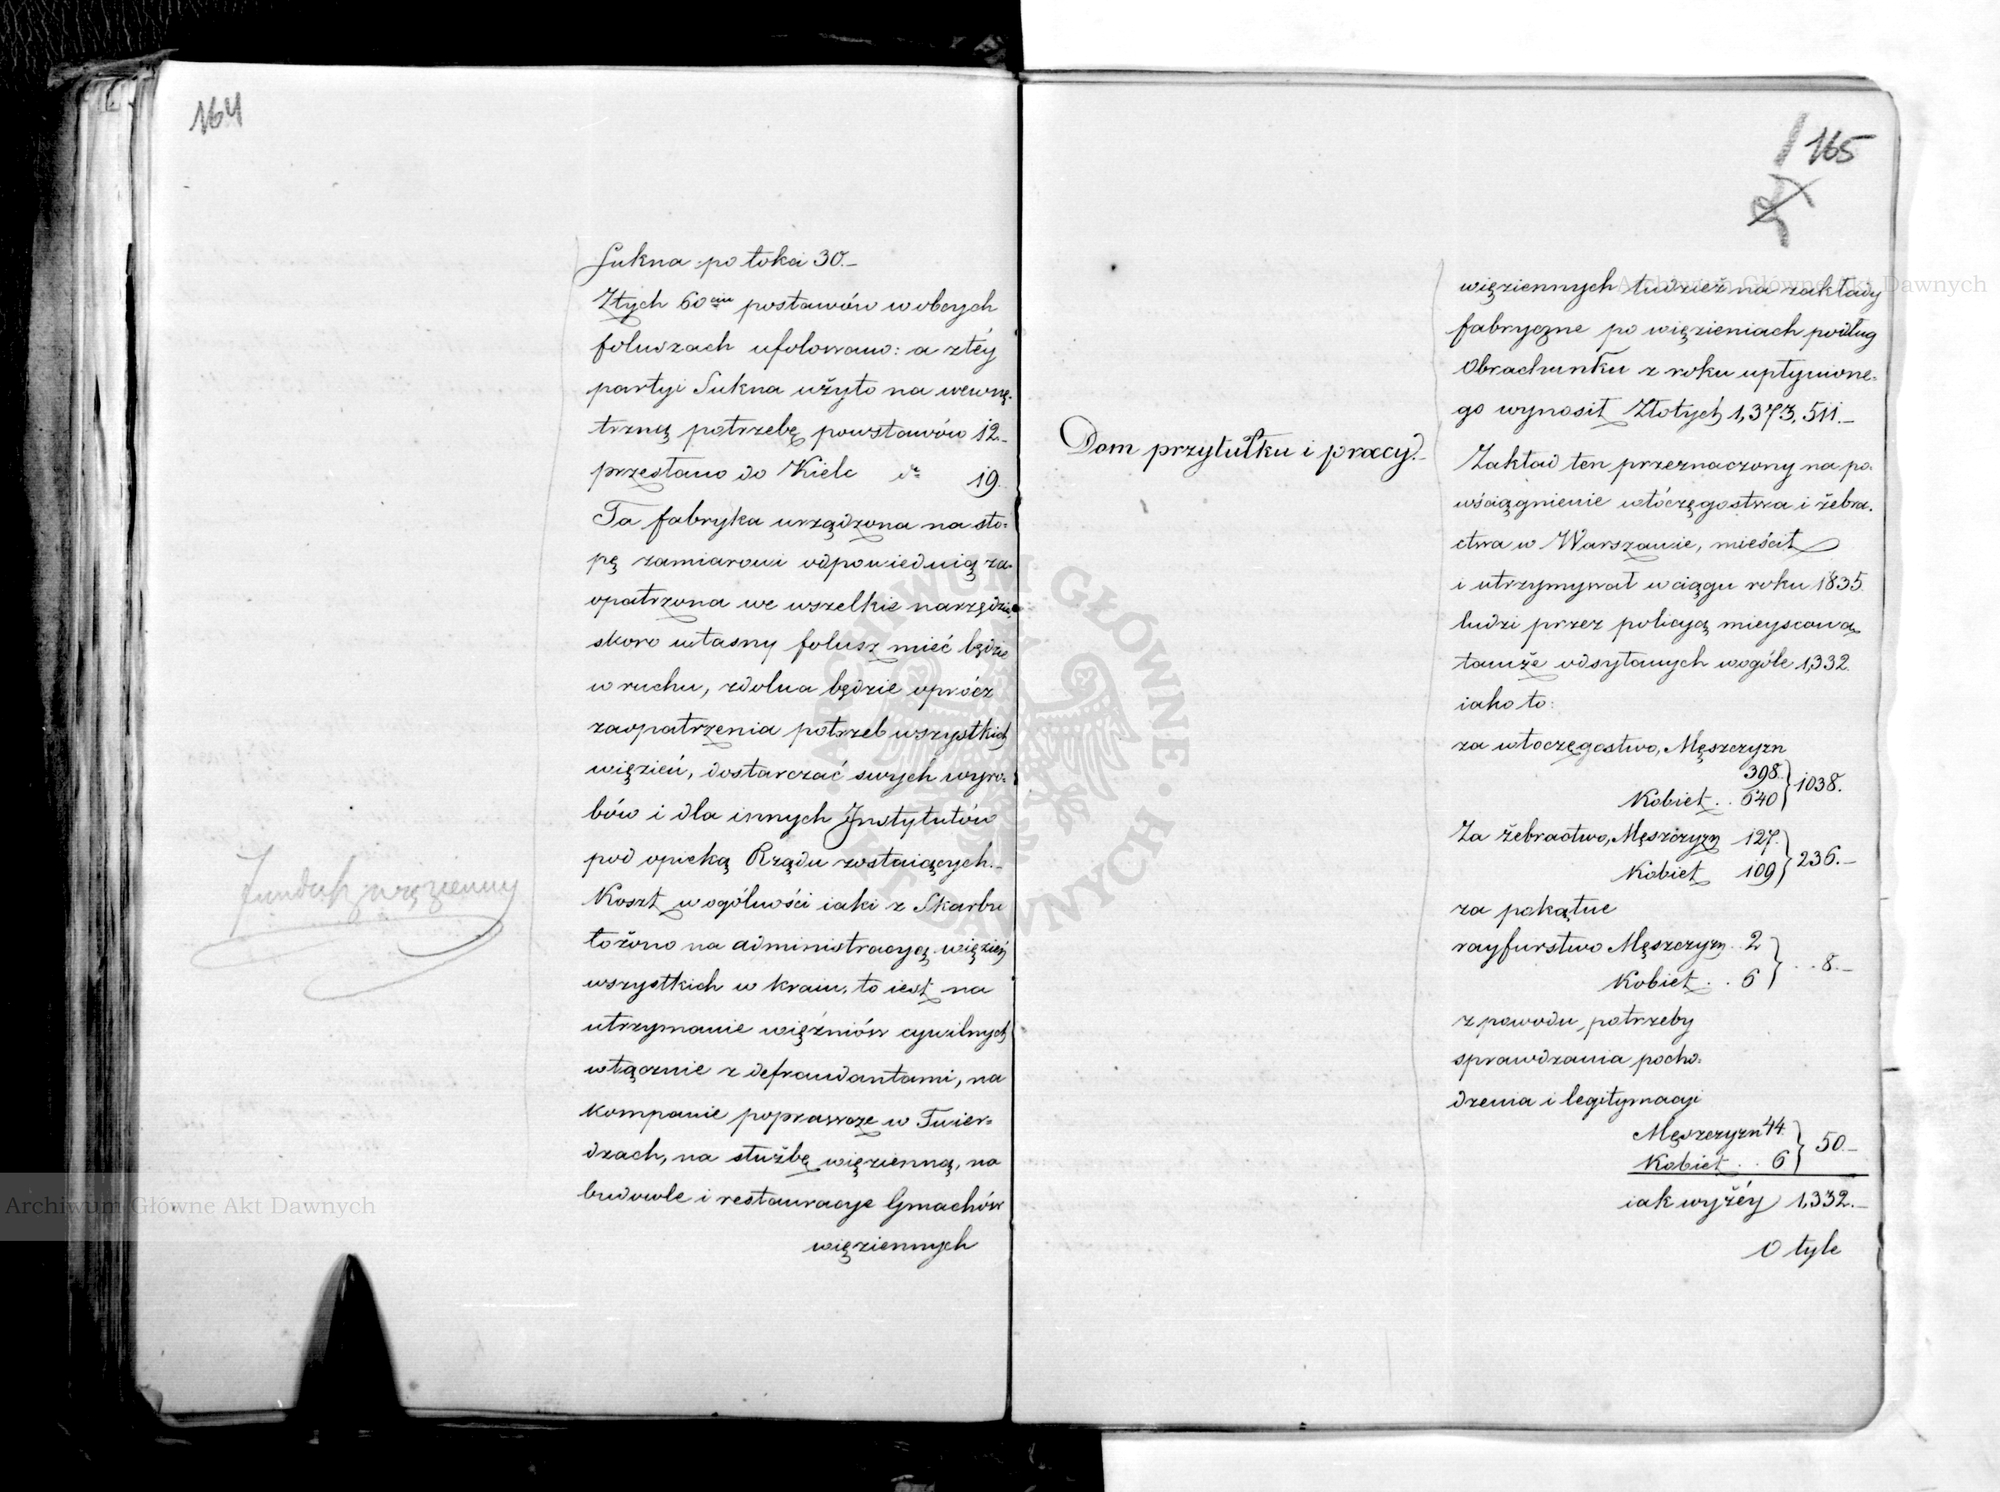 164
Sukna po łokci 30.–
Ztych 60ciu postawów w obcych
foluszach ufolowano: a ztéy
partyi Sukna użyto na wewnę-
trzną potrzebę powstawów 12.–
przesłano do Kielc do 19.
Ta fabryka urządzona na sto-
pę zamiarowi odpowiednią za-
opatrzona we wszelkie narzędzia
skoro własny folusz mieć będzie
w ruchu, zdolna będzie oprócz
zaopatrzenia potrzeb wszystkich
więzień, dostarczać swych wyro-
bów i dla innych Instytutów
pod opieką Rządu zostaiących.–
Fundusz więzienny
Koszt w ogólności iaki z Skarbu
łożono na administracyą więzień
wszystkich w kraiu, to iest na
utrzymanie więźniów cywilnych
włącznie z defraudantami, na
kompanie poprawcze w Twier-
dzach, na służbę więzienną, na
budowle i restauracye Gmachów
więziennych
165
więziennych tudzież na zakłady
fabryczne po więzieniach podług
Obrachunku z roku upłynione-
go wynosił Złotych 1,373,511.–
Dom przytułku i pracy.–
Zakład ten przeznaczony na po-
wściągnienie włóczęgostwa i żebra-
ctwa w Warszawie, mieścił
i utrzymywał w ciągu roku 1835
ludzi przez policyą mieyscową
tamże odsyłanych wogóle 1,332.
iako to:
za włoczęgostwo, Męszczyzn
398. } 1038.
Kobiet . . 640
Za żebractwo, Męszczyzn 127. } 236.–
Kobiet 109
za pokątne
rayfurstwo Męszczyzn . . 2 } . . 8.–
Kobiet . . 6
z powodu potrzeby
sprawdzania pocho-
dzenia i legitymacyi
Męszczyzn 44. } 50.–
Kobiet . . 6
iak wyżéy 1,332.–
O tyle
Archiwum Główne Akt Dawnych
Archiwum Główne Akt Dawnych
ARCHIWUM GŁÓWNE AKT DAWNYCH